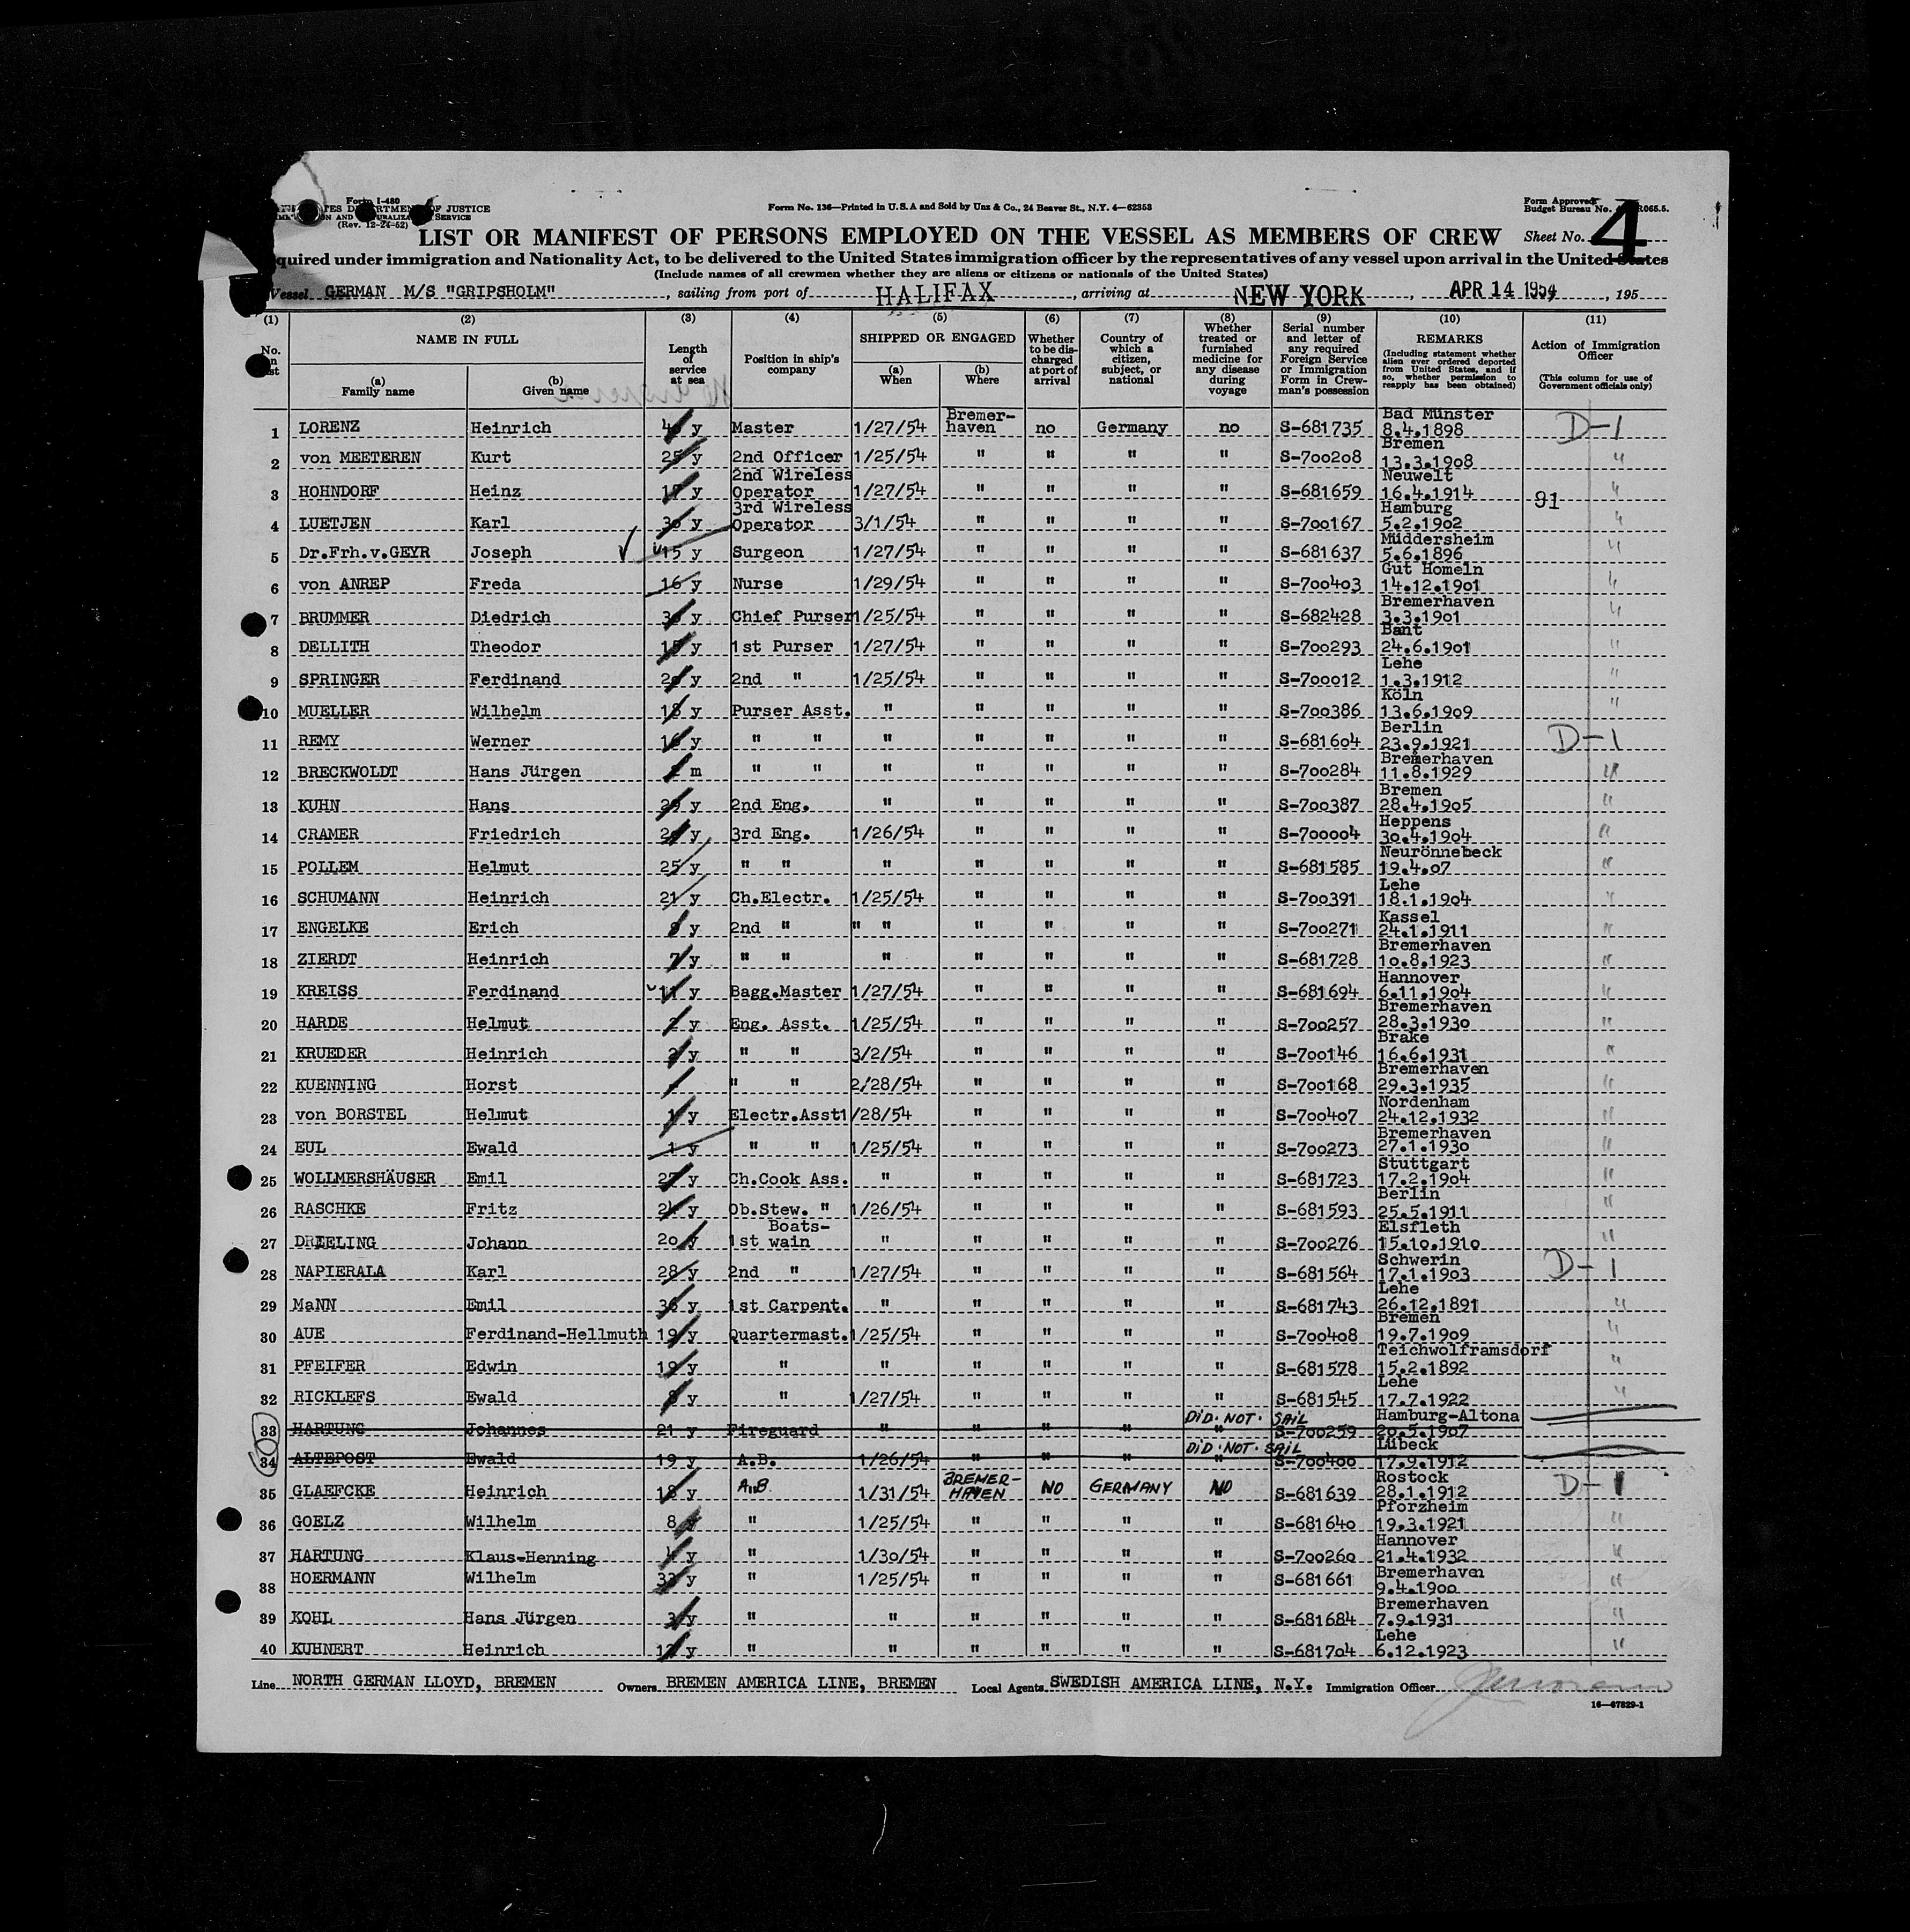 Form I-480
DEPARTMENT OF JUSTICE
SERVICE
(Rev. 12-24-52)
Form No. 136—Printed in U.S.A and Sold by Unz & Co., 24 Beaver St., N.Y. 4—62353
Form Approved
Budget Bureau No. R065.5.
LIST OR MANIFEST OF PERSONS EMPLOYED ON THE VESSEL AS MEMBERS OF CREW
Sheet No. 4
quired under immigration and Nationality Act, to be delivered to the United States immigration officer by the representatives of any vessel upon arrival in the United States
(Include names of all crewmen whether they are aliens or citizens or nationals of the United States)
Vessel GERMAN M/S "GRIPSHOLM", sailing from port of HALIFAX, arriving at NEW YORK, APR 14 1954, 195
(1) (2) (3) (4) (5) (6) (7) (8) (9) (10) (11)
No. NAME IN FULL Length of service at sea Position in ship's company SHIPPED OR ENGAGED Whether to be discharged at port of arrival Country of which a citizen, subject, or national Whether treated or furnished medicine for any disease during voyage Serial number and letter of any required Foreign Service or Immigration Form in Crewman's possession REMARKS (Including statement whether alien ever ordered deported from United States, and if so, whether permission to reapply has been obtained) Action of Immigration Officer (This column for use of Government officials only)
(a) Family name (b) Given name (a) When (b) Where
1 LORENZ Heinrich y Master 1/27/54 Bremerhaven no Germany no S-681735 Bad Münster 8.4.1898 D-1
2 von MEETEREN Kurt 25 y 2nd Officer 1/25/54 " " " " S-700208 Bremen 13.3.1908 "
3 HOHNDORF Heinz 17 y 2nd Wireless Operator 1/27/54 " " " " S-681659 Neuwelt 16.4.1914 91 "
4 LUETJEN Karl 30 y 3rd Wireless Operator 3/1/54 " " " " S-700167 Hamburg 5.2.1902 "
5 Dr.Frh.v.GEYR Joseph 15 y Surgeon 1/27/54 " " " " S-681637 Müddersheim 5.6.1896 "
6 von ANREP Freda 16 y Nurse 1/29/54 " " " " S-700403 Gut Homeln 14.12.1901 "
7 BRUMMER Diedrich y Chief Purser 1/25/54 " " " " S-682428 Bremerhaven 3.3.1901 "
8 DELLITH Theodor 15 y 1st Purser 1/27/54 " " " " S-700293 Bant 24.6.1901 "
9 SPRINGER Ferdinand 20 y 2nd " 1/25/54 " " " " S-700012 Lehe 1.3.1912 "
10 MUELLER Wilhelm 18 y Purser Asst. " " " " " S-700386 Köln 13.6.1909 "
11 REMY Werner 16 y " " " " " " " S-681604 Berlin 23.9.1921 D-1
12 BRECKWOLDT Hans Jürgen m " " " " " " " S-700284 Bremerhaven 11.8.1929 "
13 KUHN Hans 29 y 2nd Eng. " " " " " S-700387 Bremen 28.4.1905 "
14 CRAMER Friedrich y 3rd Eng. 1/26/54 " " " " S-700004 Heppens 30.4.1904 "
15 POLLEM Helmut 25 y " " " " " " " S-681585 Neurönnebeck 19.4.07 "
16 SCHUMANN Heinrich 21 y Ch.Electr. 1/25/54 " " " " S-700391 Lehe 18.1.1904 "
17 ENGELKE Erich y 2nd " " " " " " " S-700271 Kassel 24.1.1911 "
18 ZIERDT Heinrich 7 y " " " " " " " S-681728 Bremerhaven 10.8.1923 "
19 KREISS Ferdinand 11 y Bagg.Master 1/27/54 " " " " S-681694 Hannover 6.11.1904 "
20 HARDE Helmut 2 y Eng. Asst. 1/25/54 " " " " S-700257 Bremerhaven 28.3.1930 "
21 KRUEDER Heinrich 2 y " " 3/2/54 " " " " S-700146 Brake 16.6.1931 "
22 KUENNING Horst " " 2/28/54 " " " " S-700168 Bremerhaven 29.3.1935 "
23 von BORSTEL Helmut 1 y Electr.Asst 1/28/54 " " " " S-700407 Nordenham 24.12.1932 "
24 EUL Ewald 1 y " " 1/25/54 " " " " S-700273 Bremerhaven 27.1.1930 "
25 WOLLMERSHÄUSER Emil 27 y Ch.Cook Ass. " " " " " S-681723 Stuttgart 17.2.1904 "
26 RASCHKE Fritz 24 y Ob.Stew. " 1/26/54 " " " " S-681593 Berlin 25.5.1911 "
27 DREELING Johann 20 y 1st Boatswain " " " " " S-700276 Elsfleth 15.10.1910 "
28 NAPIERALA Karl 28 y 2nd " 1/27/54 " " " " S-681564 Schwerin 17.1.1903 D-1
29 MaNN Emil 36 y 1st Carpent. " " " " " S-681743 Lehe 26.12.1891 "
30 AUE Ferdinand-Hellmuth 19 y Quartermast. 1/25/54 " " " " S-700408 Bremen 19.7.1909 "
31 PFEIFER Edwin 19 y " " " " " " S-681578 Teichwolframsdorf 15.2.1892 "
32 RICKLEFS Ewald 8 y " 1/27/54 " " " " S-681545 Lehe 17.7.1922 "
33 HARTUNG Johannes 21 y Fireguard " " " " " DID NOT SAIL S-700259 Hamburg-Altona 20.5.1907
34 ALTEPOST Ewald 19 y A.B. 1/26/54 " " " " DID NOT SAIL S-700400 Lübeck 17.9.1912
35 GLAEFCKE Heinrich 18 y A.B. 1/31/54 BREMERHAVEN NO GERMANY NO S-681639 Rostock 28.1.1912 D-1
36 GOELZ Wilhelm 8 y " 1/25/54 " " " " S-681640 Pforzheim 19.3.1921 "
37 HARTUNG Klaus-Henning 4 y " 1/30/54 " " " " S-700260 Hannover 21.4.1932 "
38 HOERMANN Wilhelm 33 y " 1/25/54 " " " " S-681661 Bremerhaven 9.4.1900 "
39 KOHL Hans Jürgen 3 y " " " " " " S-681684 Bremerhaven 7.9.1931 "
40 KUHNERT Heinrich y " " " " " " S-681704 Lehe 6.12.1923 "
Line NORTH GERMAN LLOYD, BREMEN Owners BREMEN AMERICA LINE, BREMEN Local Agents SWEDISH AMERICA LINE, N.Y. Immigration Officer
16—67829-1